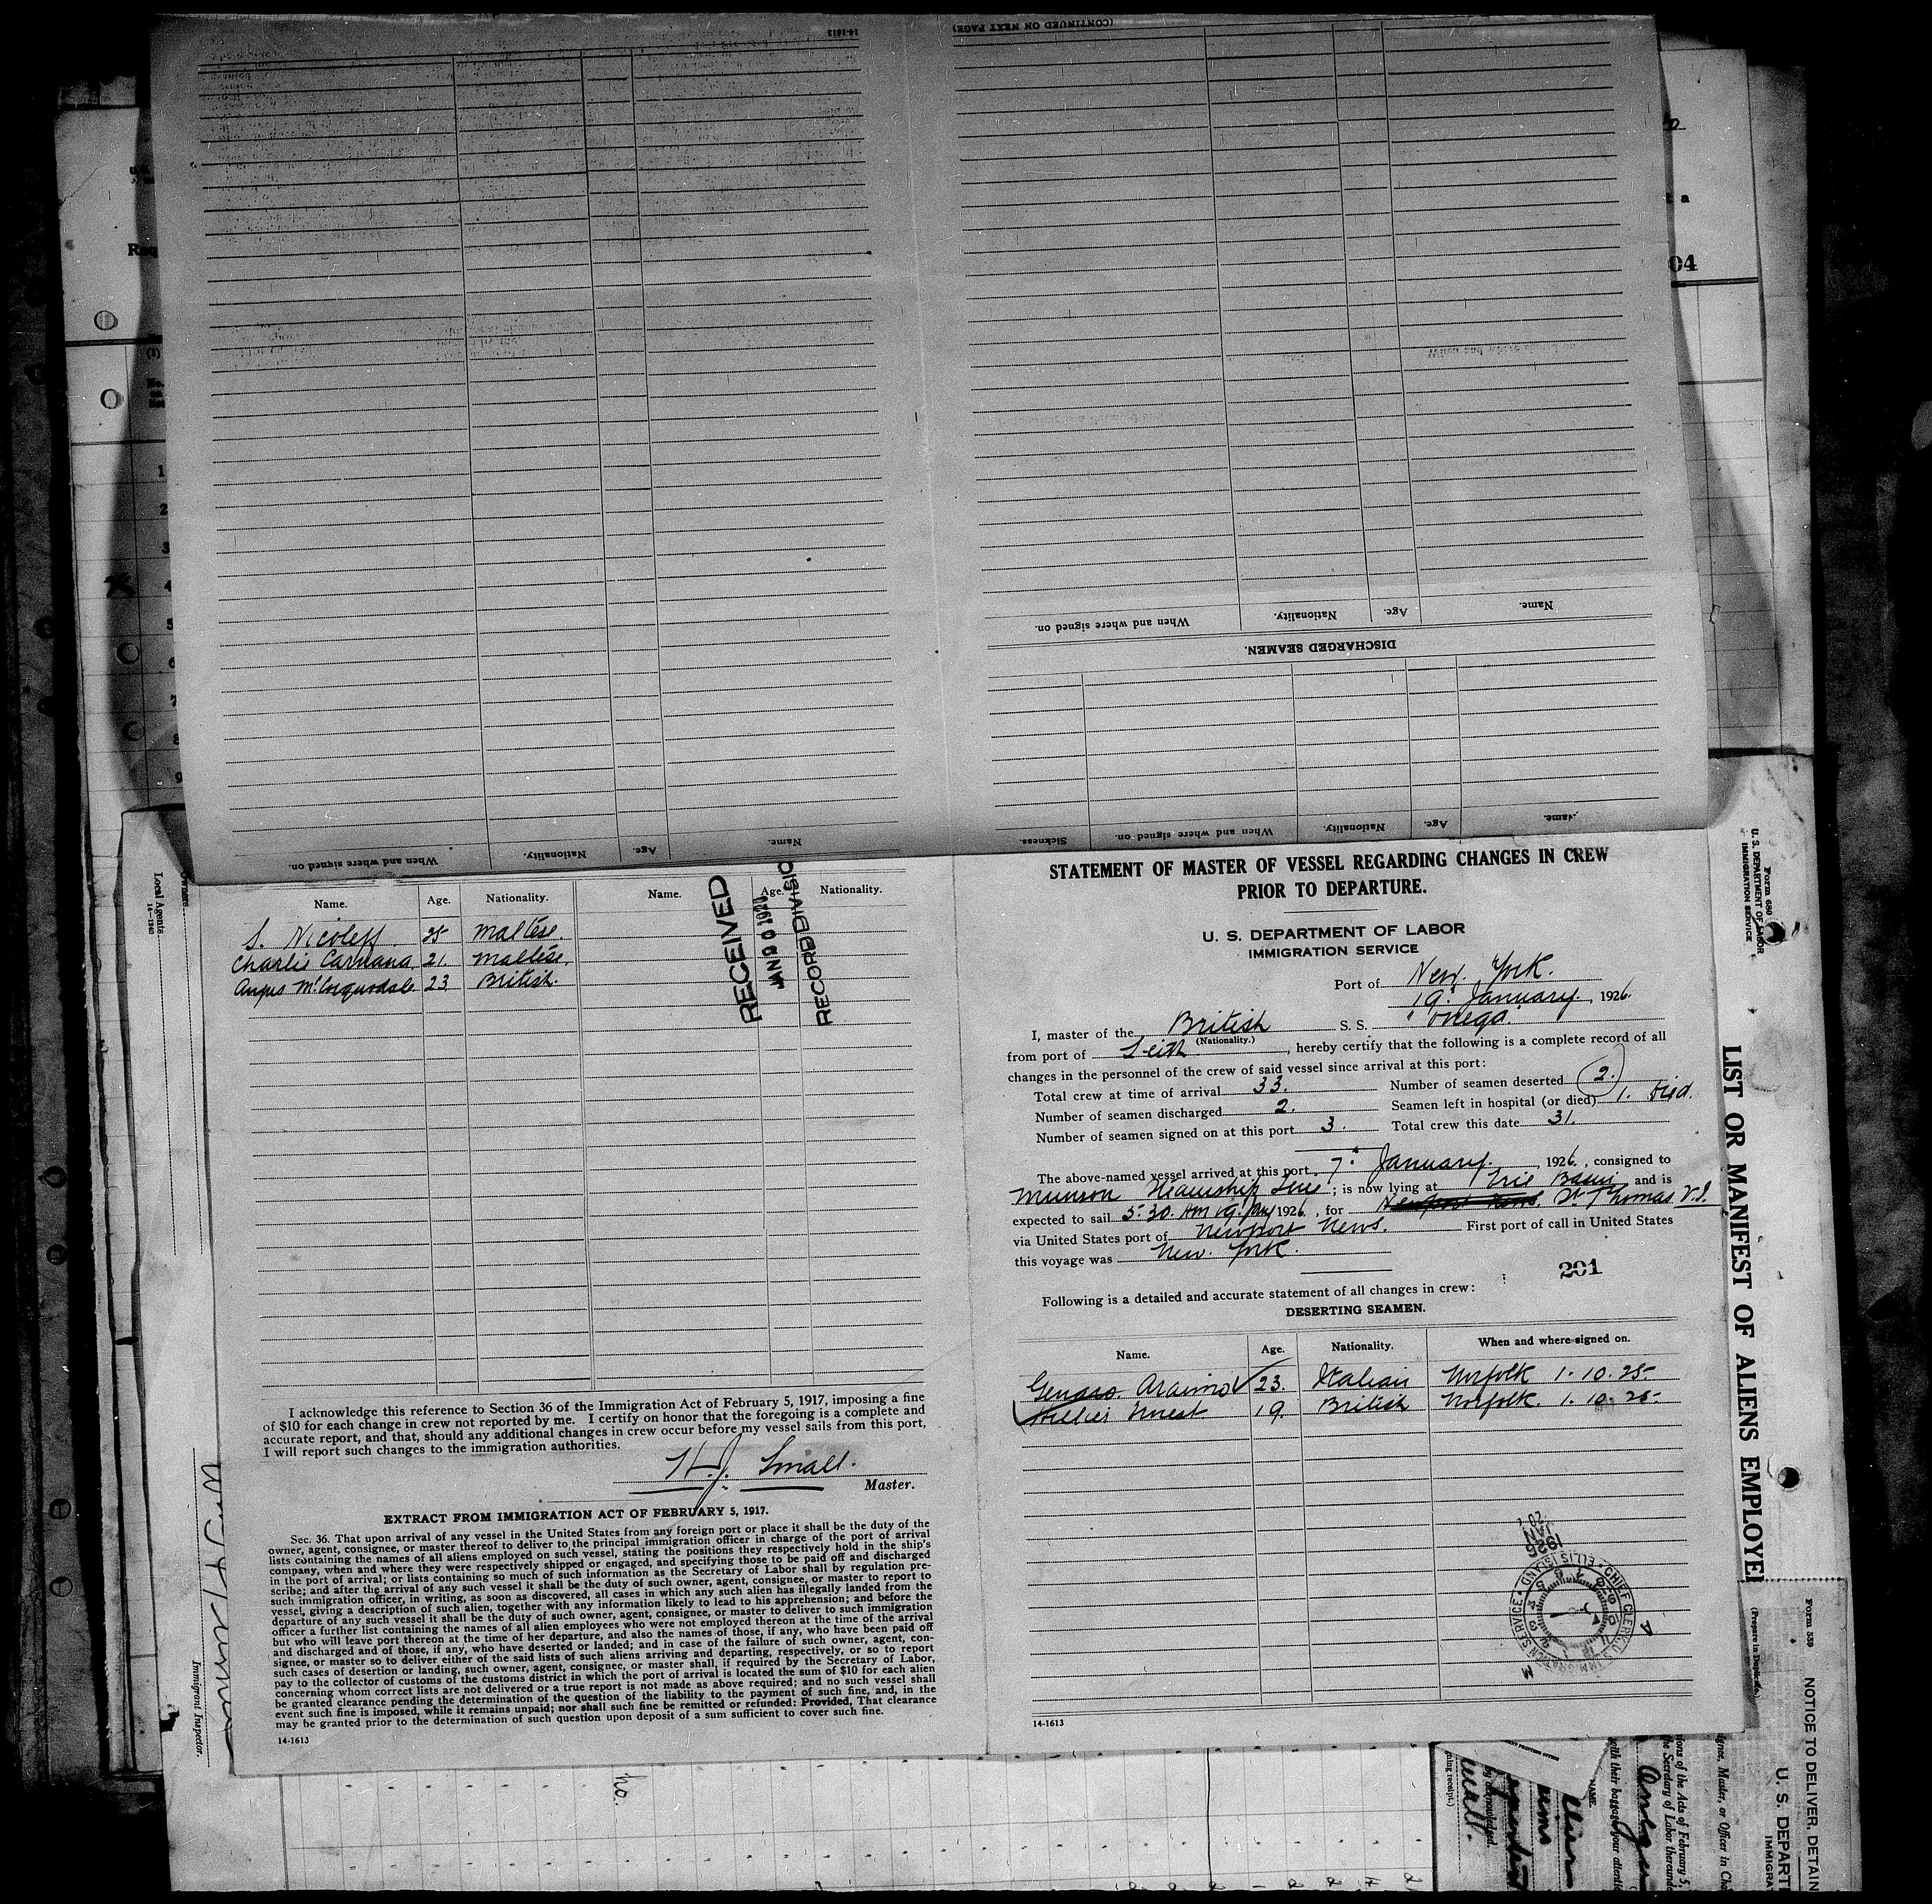 14-1613
(CONTINUED ON NEXT PAGE)
Name.
Age.
Nationality.
When and where signed on.
DISCHARGED SEAMEN.
Name.
Age.
Nationality.
When and where signed on.
Sickness.
Name.
Age.
Nationality.
When and where signed on.
Name. Age. Nationality. Name. Age. Nationality.
25 Maltese.
Charlie Caruana. 21. Maltese.
Angus McCorquodale 23 British.
RECEIVED
RECORD DIVISIO
I acknowledge this reference to Section 36 of the Immigration Act of February 5, 1917, imposing a fine
of $10 for each change in crew not reported by me. I certify on honor that the foregoing is a complete and
accurate report, and that, should any additional changes in crew occur before my vessel sails from this port,
I will report such changes to the immigration authorities.
H.J. Small.
Master.
EXTRACT FROM IMMIGRATION ACT OF FEBRUARY 5, 1917.
Sec. 36. That upon arrival of any vessel in the United States from any foreign port or place it shall be the duty of the
owner, agent, consignee, or master thereof to deliver to the principal immigration officer in charge of the port of arrival
lists containing the names of all aliens employed on such vessel, stating the positions they respectively hold in the ship's
company, when and where they were respectively shipped or engaged, and specifying those to be paid off and discharged
in the port of arrival; or lists containing so much of such information as the Secretary of Labor shall by regulation pre-
scribe; and after the arrival of any such vessel it shall be the duty of such owner, agent, consignee, or master to report to
such immigration officer, in writing, as soon as discovered, all cases in which any such alien has illegally landed from the
vessel, giving a description of such alien, together with any information likely to lead to his apprehension; and before the
departure of any such vessel it shall be the duty of such owner, agent, consignee, or master to deliver to such immigration
officer a further list containing the names of all alien employees who were not employed thereon at the time of the arrival
but who will leave port thereon at the time of her departure, and also the names of those, if any, who have been paid off
and discharged and of those, if any, who have deserted or landed; and in case of the failure of such owner, agent, con-
signee, or master so to deliver either of the said lists of such aliens arriving and departing, respectively, or so to report
such cases of desertion or landing, such owner, agent, consignee, or master shall, if required by the Secretary of Labor,
pay to the collector of customs of the customs district in which the port of arrival is located the sum of $10 for each alien
concerning whom correct lists are not delivered or a true report is not made as above required; and no such vessel shall
be granted clearance pending the determination of the question of the liability to the payment of such fine, and, in the
event such fine is imposed, while it remains unpaid; nor shall such fine be remitted or refunded: Provided, That clearance
may be granted prior to the determination of such question upon deposit of a sum sufficient to cover such fine.
14-1613
STATEMENT OF MASTER OF VESSEL REGARDING CHANGES IN CREW
PRIOR TO DEPARTURE.
U. S. DEPARTMENT OF LABOR
IMMIGRATION SERVICE
Port of New York.
19. January., 1926.
I, master of the British S. S. "Onega."
(Nationality.)
from port of Leith, hereby certify that the following is a complete record of all
changes in the personnel of the crew of said vessel since arrival at this port:
Total crew at time of arrival 33. Number of seamen deserted 2.
Number of seamen discharged 2. Seamen left in hospital (or died) 1. Died.
Number of seamen signed on at this port 3. Total crew this date 31.
The above-named vessel arrived at this port 7. January., 1926., consigned to
Munson Steamship Line; is now lying at Erie Basin, and is
expected to sail 5.30. AM 19. Jany 1926, for Newport News. St Thomas V.I.
via United States port of Newport News. First port of call in United States
this voyage was New. York.
201
Following is a detailed and accurate statement of all changes in crew:
DESERTING SEAMEN.
Name. Age. Nationality. When and where signed on.
23. Italian Norfolk 1. 10. 25
Ernest 19. British Norfolk. 1. 10. 25.
1926
JAN
20
CHIEF CLERK, U.S. IMMIGRATION SERVICE • ELLIS ISLAND •
A
M
14-1613
Form 680
U. S. DEPARTMENT OF LABOR
IMMIGRATION SERVICE
LIST OR MANIFEST OF ALIENS EMPLOYE
Form 559
(Prepare in Duplicate.)
NOTICE TO DELIVER, DETAIN
U. S. DEPART
IMMIGRA
Local Agents
14-1240
Owners
Immigrant Inspector.
04
no.